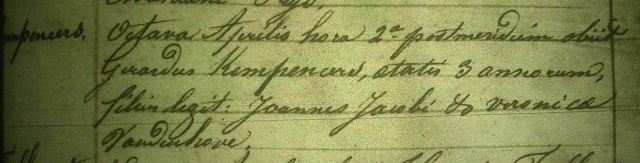 Kempeneers, Octava Aprilis hora 2a postmeridiem obiit
Gerardus Kempeneers, etatis 3 annorum,
filius legit: Joannis Jacobi & veronicæ
Vandenhove.